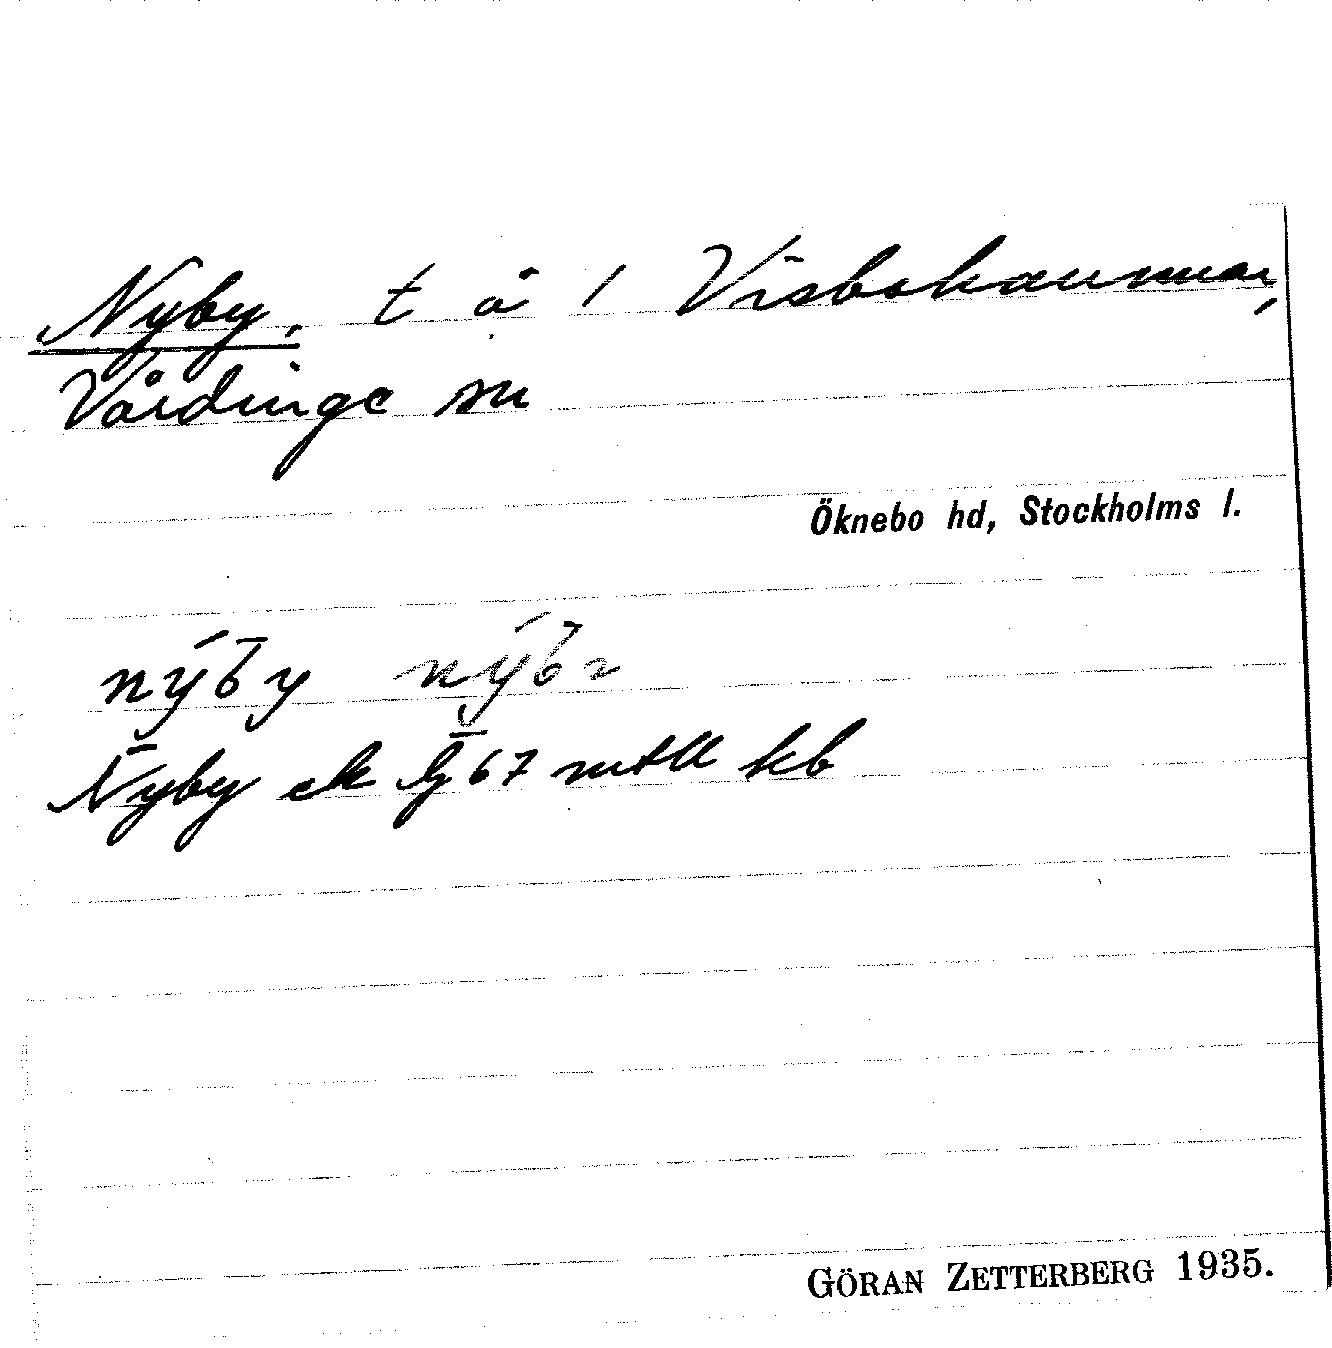 Nyby, t å 1 Visbohammar,
Vårdinge sn
Öknebo hd, Stockholms l.
nýby nýbı
Nyby ek 67 mtll kb
GÖRAN ZETTERBERG 1935.